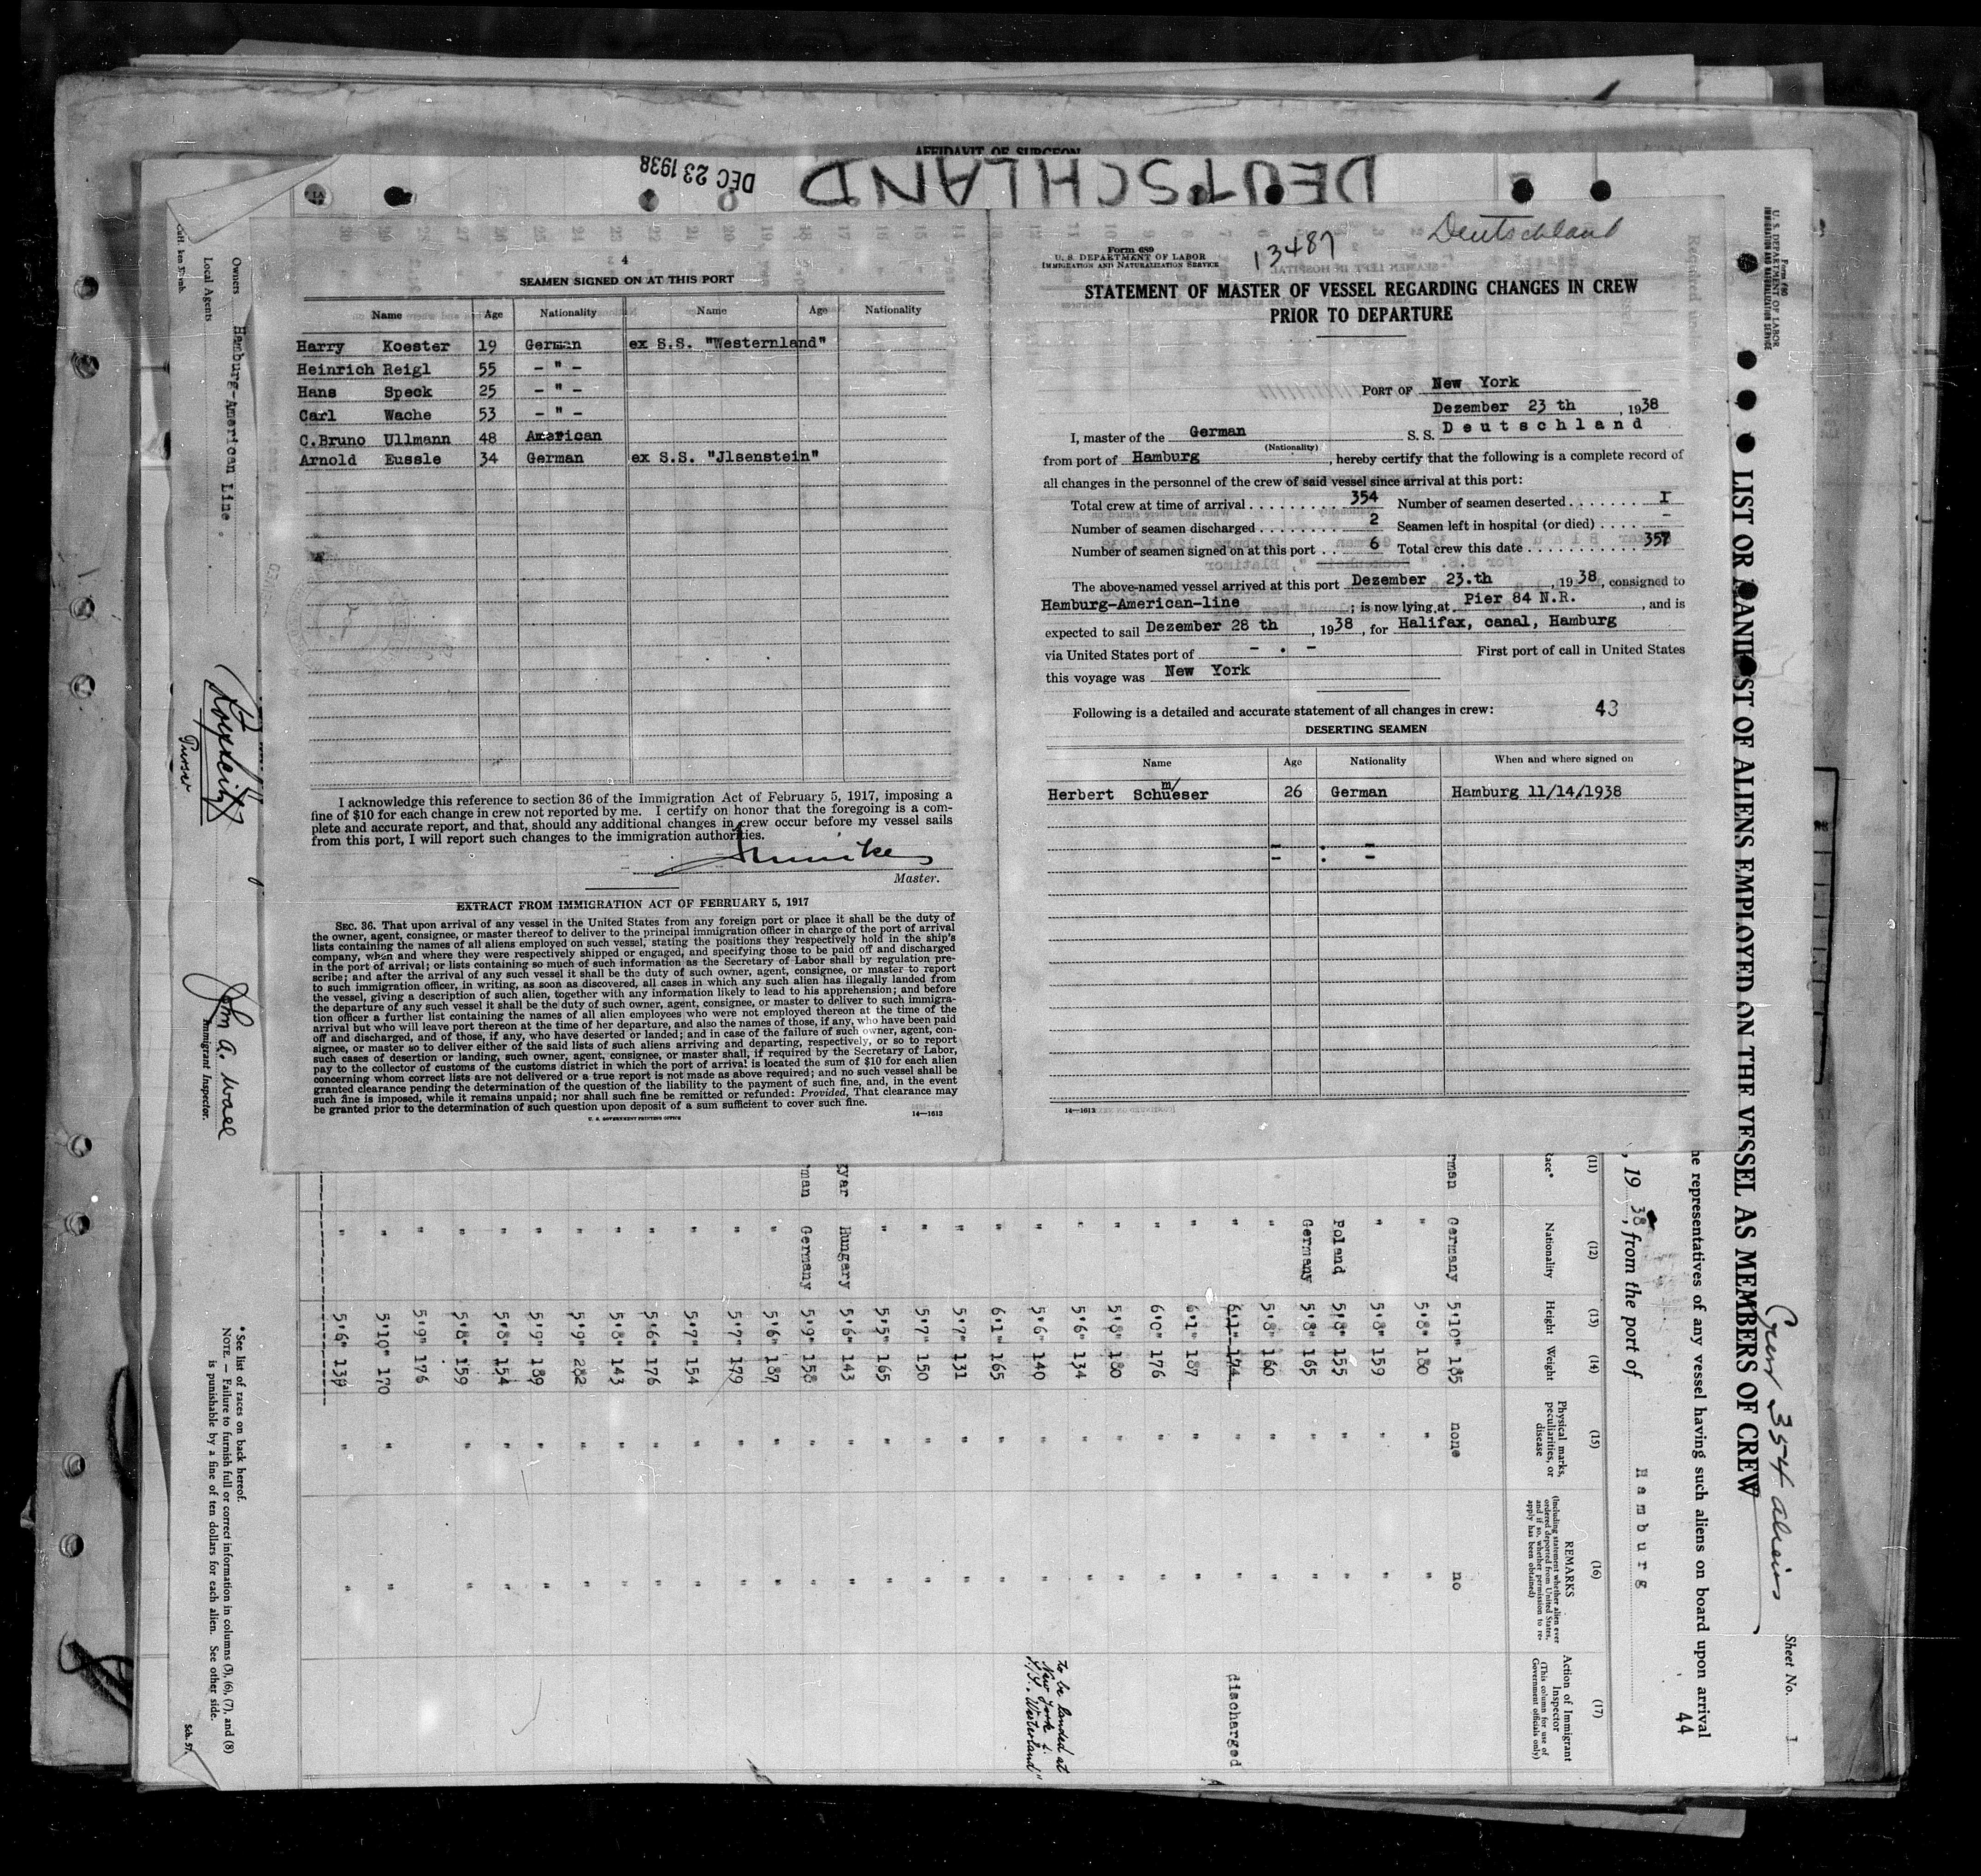 AFFIDAVIT OF SURGEON
DEC 23 1938
DEUTSCHLAND
4
SEAMEN SIGNED ON AT THIS PORT
Name Age Nationality Name Age Nationality
Harry Koester 19 German ex S.S. "Westernland"
Heinrich Reigl 55 - " -
Hans Speck 25 - " -
Carl Wache 53 - " -
C.Bruno Ullmann 48 American
Arnold Eussle 34 German ex S.S. "Jlsenstein"
I acknowledge this reference to section 36 of the Immigration Act of February 5, 1917, imposing a
fine of $10 for each change in crew not reported by me. I certify on honor that the foregoing is a com-
plete and accurate report, and that, should any additional changes in crew occur before my vessel sails
from this port, I will report such changes to the immigration authorities.
Master.
EXTRACT FROM IMMIGRATION ACT OF FEBRUARY 5, 1917
SEC. 36. That upon arrival of any vessel in the United States from any foreign port or place it shall be the duty of
the owner, agent, consignee, or master thereof to deliver to the principal immigration officer in charge of the port of arrival
lists containing the names of all aliens employed on such vessel, stating the positions they respectively hold in the ship's
company, when and where they were respectively shipped or engaged, and specifying those to be paid off and discharged
in the port of arrival; or lists containing so much of such information as the Secretary of Labor shall by regulation pre-
scribe; and after the arrival of any such vessel it shall be the duty of such owner, agent, consignee, or master to report
to such immigration officer, in writing, as soon as discovered, all cases in which any such alien has illegally landed from
the vessel, giving a description of such alien, together with any information likely to lead to his apprehension; and before
the departure of any such vessel it shall be the duty of such owner, agent, consignee, or master to deliver to such immigra-
tion officer a further list containing the names of all alien employees who were not employed thereon at the time of the
arrival but who will leave port thereon at the time of her departure, and also the names of those, if any, who have been paid
off and discharged, and of those, if any, who have deserted or landed; and in case of the failure of such owner, agent, con-
signee, or master so to deliver either of the said lists of such aliens arriving and departing, respectively, or so to report
such cases of desertion or landing, such owner, agent, consignee, or master shall, if required by the Secretary of Labor,
pay to the collector of customs of the customs district in which the port of arrival is located the sum of $10 for each alien
concerning whom correct lists are not delivered or a true report is not made as above required; and no such vessel shall be
granted clearance pending the determination of the question of the liability to the payment of such fine, and, in the event
such fine is imposed, while it remains unpaid; nor shall such fine be remitted or refunded: Provided, That clearance may
be granted prior to the determination of such question upon deposit of a sum sufficient to cover such fine.
U. S. GOVERNMENT PRINTING OFFICE 14—1613
Form 689
U. S. DEPARTMENT OF LABOR
IMMIGRATION AND NATURALIZATION SERVICE
13487
Deutschland
STATEMENT OF MASTER OF VESSEL REGARDING CHANGES IN CREW
PRIOR TO DEPARTURE
PORT OF New York
Dezember 23 th , 1938
I, master of the German S. S. Deutschland
(Nationality)
from port of Hamburg , hereby certify that the following is a complete record of
all changes in the personnel of the crew of said vessel since arrival at this port:
Total crew at time of arrival . . . . . . . . . . 354 Number of seamen deserted . . . . . . . I
Number of seamen discharged . . . . . . . . 2 Seamen left in hospital (or died) . . . . -
Number of seamen signed on at this port . . 6 Total crew this date . . . . . . . . . . . 357
The above-named vessel arrived at this port Dezember 23.th , 1938, consigned to
Hamburg-American-line ; is now lying at Pier 84 N.R. , and is
expected to sail Dezember 28 th , 1938 , for Halifax, canal, Hamburg
via United States port of - . - First port of call in United States
this voyage was New York
Following is a detailed and accurate statement of all changes in crew: 43
DESERTING SEAMEN
Name Age Nationality When and where signed on
m/
Herbert Schueser 26 German Hamburg 11/14/1938
- . -
- . -
14—1613
Form 680
U. S. DEPARTMENT OF LABOR
IMMIGRATION AND NATURALIZATION SERVICE
LIST OR MANIFEST OF ALIENS EMPLOYED ON THE VESSEL AS MEMBERS OF CREW
Crew 354 aliens
Sheet No. 1
he representatives of any vessel having such aliens on board upon arrival
44
, 19 38, from the port of Hamburg
(11) (12) (13) (14) (15) (16) (17)
Race* Nationality Height Weight Physical marks, peculiarities, or disease REMARKS (Including statement whether alien ever ordered deported from United States, and if so, whether permission to re-apply has been obtained) Action of Immigrant Inspector (This column for use of Government officials only)
rman Germany 5'10" 185 none no
" 5'8" 180 " "
" 5'8" 159 " "
Poland 5'8" 155 " "
Germany 5'8" 165 " "
" 5'8" 160 " "
" 6'1" 174 " " discharged
" 6'1" 187 " "
" 6'0" 176 " "
" 5'8" 180 " "
" 5'6" 134 " "
" 5'6" 140 " " to be landed at New York
" 6'1" 165 " "
" 5'7" 131 " "
" 5'7" 150 " "
" 5'5" 165 " "
gyar Hungary 5'6" 143 " "
man Germany 5'9" 158 " "
" 5'6" 187 " "
" 5'7" 179 " "
" 5'7" 154 " "
" 5'6" 176 " "
" 5'8" 143 " "
" 5'9" 282 " "
" 5'9" 189 " "
" 5'8" 154 " "
" 5'8" 159 " "
" 5'9" 176
" 5'10" 170 " "
" 5'6" 134 " "
* See list of races on back hereof.
NOTE. — Failure to furnish full or correct information in columns (3), (6), (7), and (8)
is punishable by a fine of ten dollars for each alien. See other side.
Sch. 57.
Owners Hamburg-American Line.
Local Agents
Purser
John A.
Immigrant Inspector.